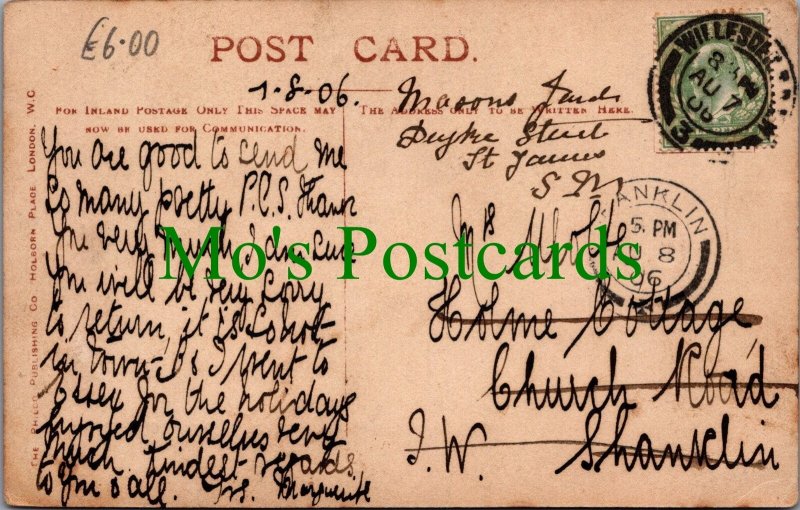 £6.00
POST CARD.
7-8-06.
FOR INLAND POSTAGE ONLY THIS SPACE MAY
NOW BE USED FOR COMMUNICATION.
THE ADDRESS ONLY TO BE WRITTEN HERE.
THE PHILCO PUBLISHING CO HOLBORN PLACE LONDON, W.C
You are good to send me
so many pretty P.C.S. Thank
you very much I am sure
you will be very sorry
to return, it is so hot
in town. Ps I went to
Essex for the holidays
enjoyed ourselves very
much. Kindest regards
to you & all. Yrs. Marguerite
Masons Yard
Street
St James
Mrs
Holme Cottage
Church Road
I.W. Shanklin
WILLESDEN
AU 7
06
3
SHANKLIN
5. PM
AU 8
06
Mo's Postcards